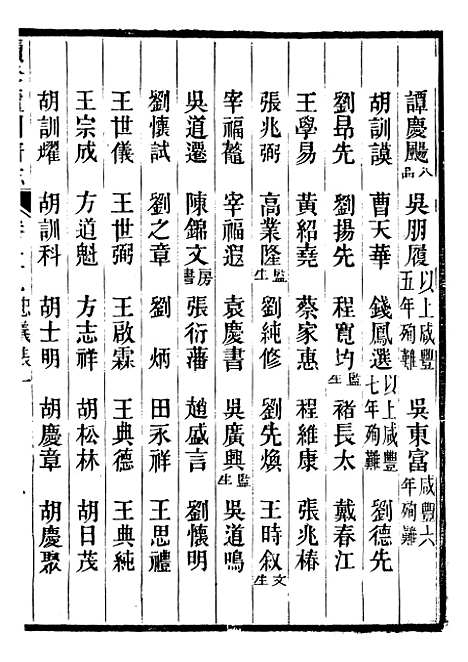 譚慶颺八品 吳朋履以上咸豐五年殉難 吳東富咸豐六年殉難
胡訓謨 曹天華 錢鳳選以上咸豐七年殉難 劉德先
劉昂先 劉揚先 程寬均監生 褚長太 戴春江
王學易 黃紹堯 蔡家惠 程維康 張兆椿
張兆弼 高業隆監生 劉純修 劉先煥 王時叙文生
宰福蘊 宰福遐 袁慶書 吳廣興監生 吳道鳴
吳道遷 陳錦文房書 張衍藩 趙盛言 劉懷明
劉懷試 劉之章 劉炳 田永祥 王思禮
王世儀 王世弼 王啟霖 王典德 王典純
王宗成 方道魁 方志祥 胡松林 胡日茂
胡訓耀 胡訓科 胡士明 胡慶章 胡慶聚